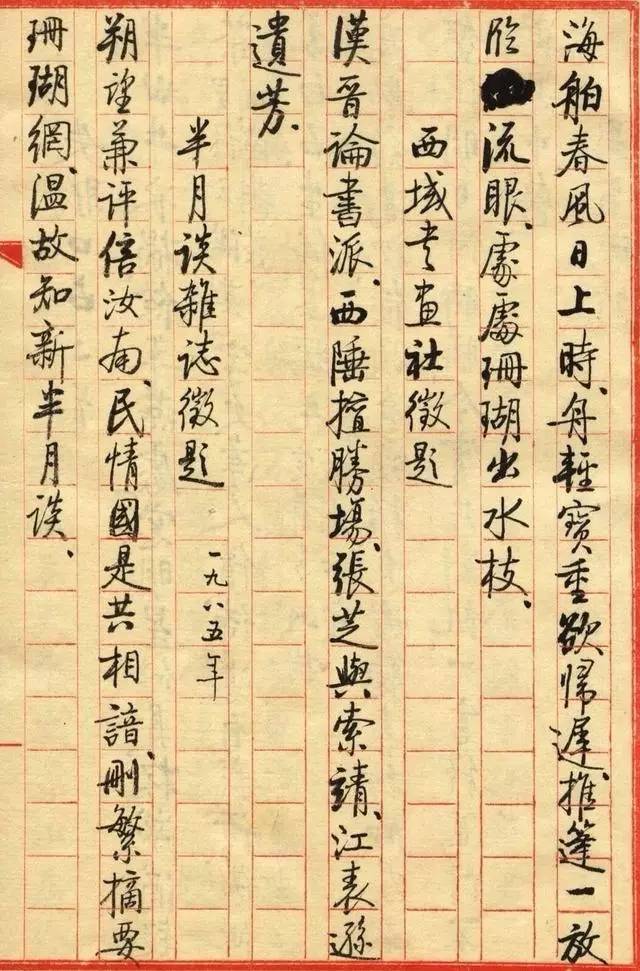 海舶春風日上時、舟輕寶重欲歸遲、推篷一放
臨流眼、處處珊瑚出水枝、
西域書畫社徵題
漢晉論書派、西陲擅勝場、張芝與索靖、江表遜
遺芳、
半月談雜誌徵題 一九八五年
朔望兼評倍汝南、民情國是共相諳、刪繁摘要
珊瑚網、温故知新半月談、